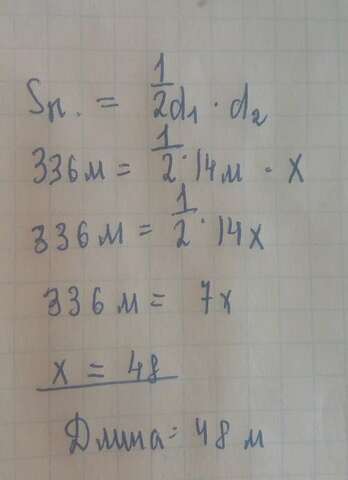 Sп. = 1/2 d₁ · d₂
336м = 1/2 · 14м · x
336м = 1/2 · 14x
336м = 7x
x = 48
Длина = 48 м